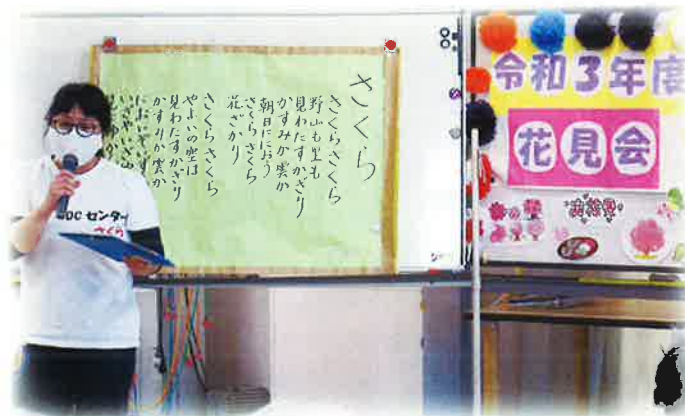 さくら
さくらさくら
野山も里も
見わたすかぎり
かすみか雲か
朝日ににおう
さくらさくら
花ざかり
さくらさくら
やよいの空は
見わたすかぎり
かすみか雲か
いざやいざや
令和3年度
花見会
お花見
センター
さくら